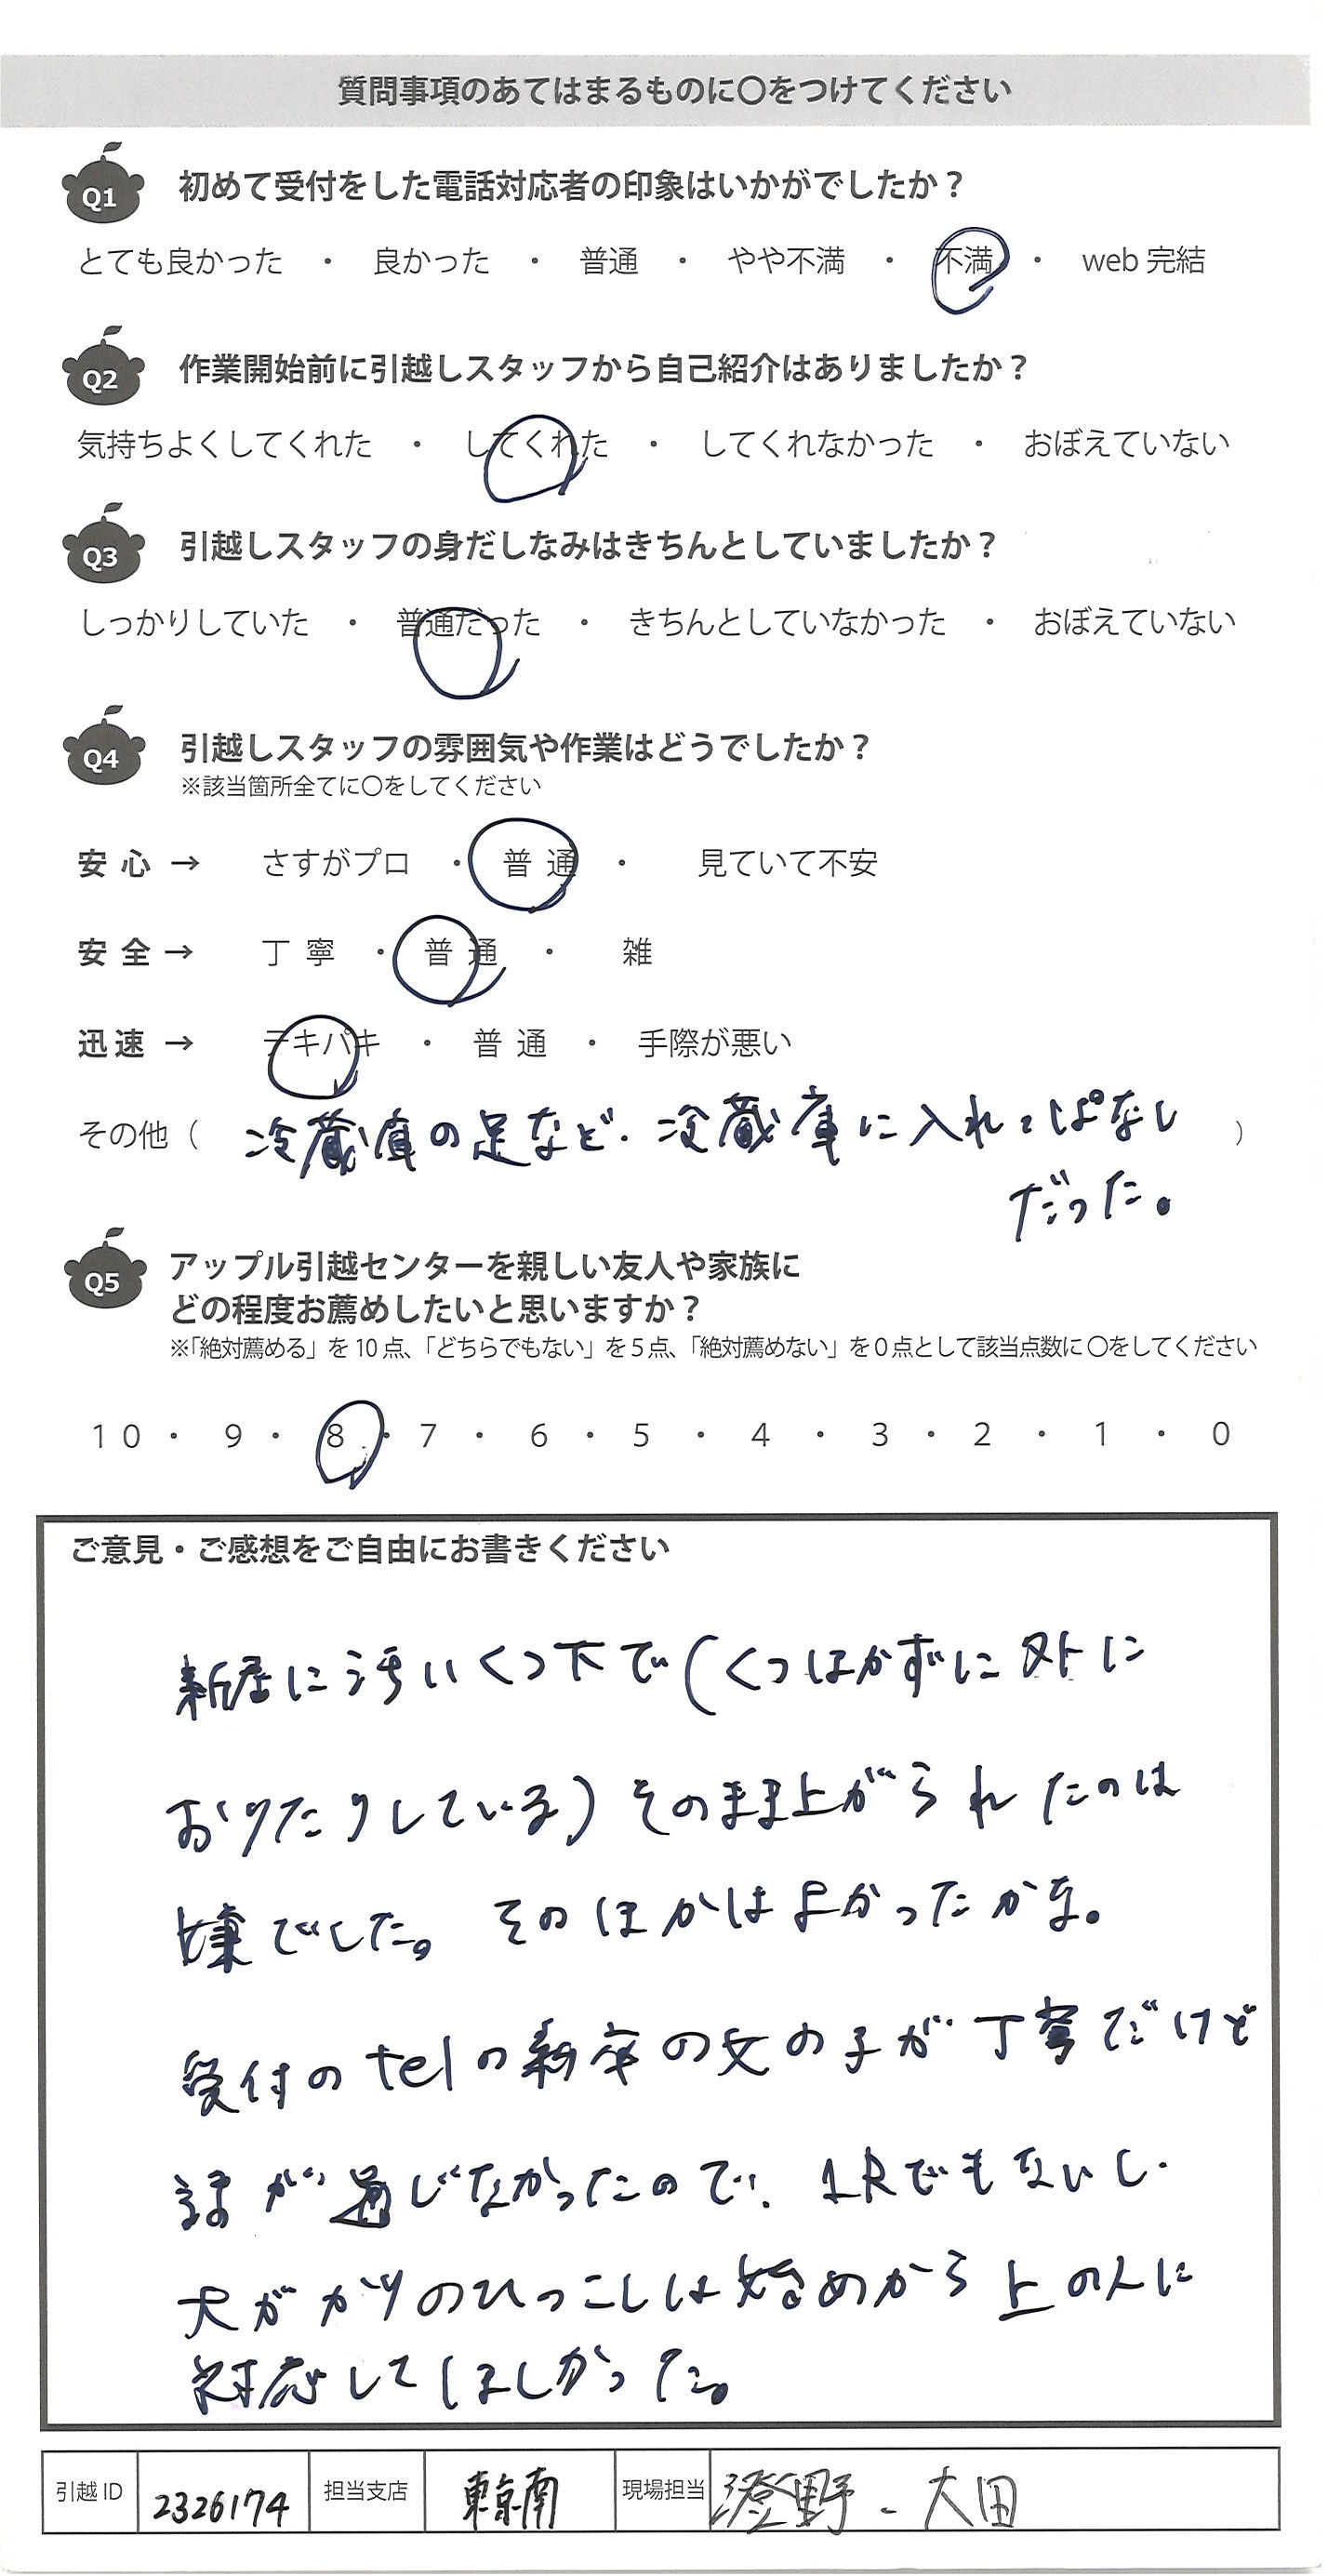 質問事項のあてはまるものに〇をつけてください
Q1 初めて受付をした電話対応者の印象はいかがでしたか？
とても良かった ・ 良かった ・ 普通 ・ やや不満 ・ 不満 ・ web 完結
Q2 作業開始前に引越しスタッフから自己紹介はありましたか？
気持ちよくしてくれた ・ してくれた ・ してくれなかった ・ おぼえていない
Q3 引越しスタッフの身だしなみはきちんとしていましたか？
しっかりしていた ・ 普通だった ・ きちんとしていなかった ・ おぼえていない
Q4 引越しスタッフの雰囲気や作業はどうでしたか？
※該当箇所全てに〇をしてください
安心 → さすがプロ ・ 普通 ・ 見ていて不安
安全 → 丁寧 ・ 普通 ・ 雑
迅速 → テキパキ ・ 普通 ・ 手際が悪い
その他（ 冷蔵庫の足など、冷蔵庫に入れっぱなし ）
だった。
Q5 アップル引越センターを親しい友人や家族に
どの程度お薦めしたいと思いますか？
※「絶対薦める」を10点、「どちらでもない」を5点、「絶対薦めない」を0点として該当点数に〇をしてください
10 ・ 9 ・ 8 ・ 7 ・ 6 ・ 5 ・ 4 ・ 3 ・ 2 ・ 1 ・ 0
ご意見・ご感想をご自由にお書きください
新居に汚いくつ下で(くつはかずに外に
おりたりしている)そのまま上がられたのは
嫌でした。そのほかはよかったかな。
受付のtelの新卒の女の子が丁寧だけど
話が通じなかったので、1Rでもないし、
大がかりのひっこしは始めから上の人に
対応してほしかった。
引越ID 2326174 担当支店 東京南 現場担当 澄野、大田